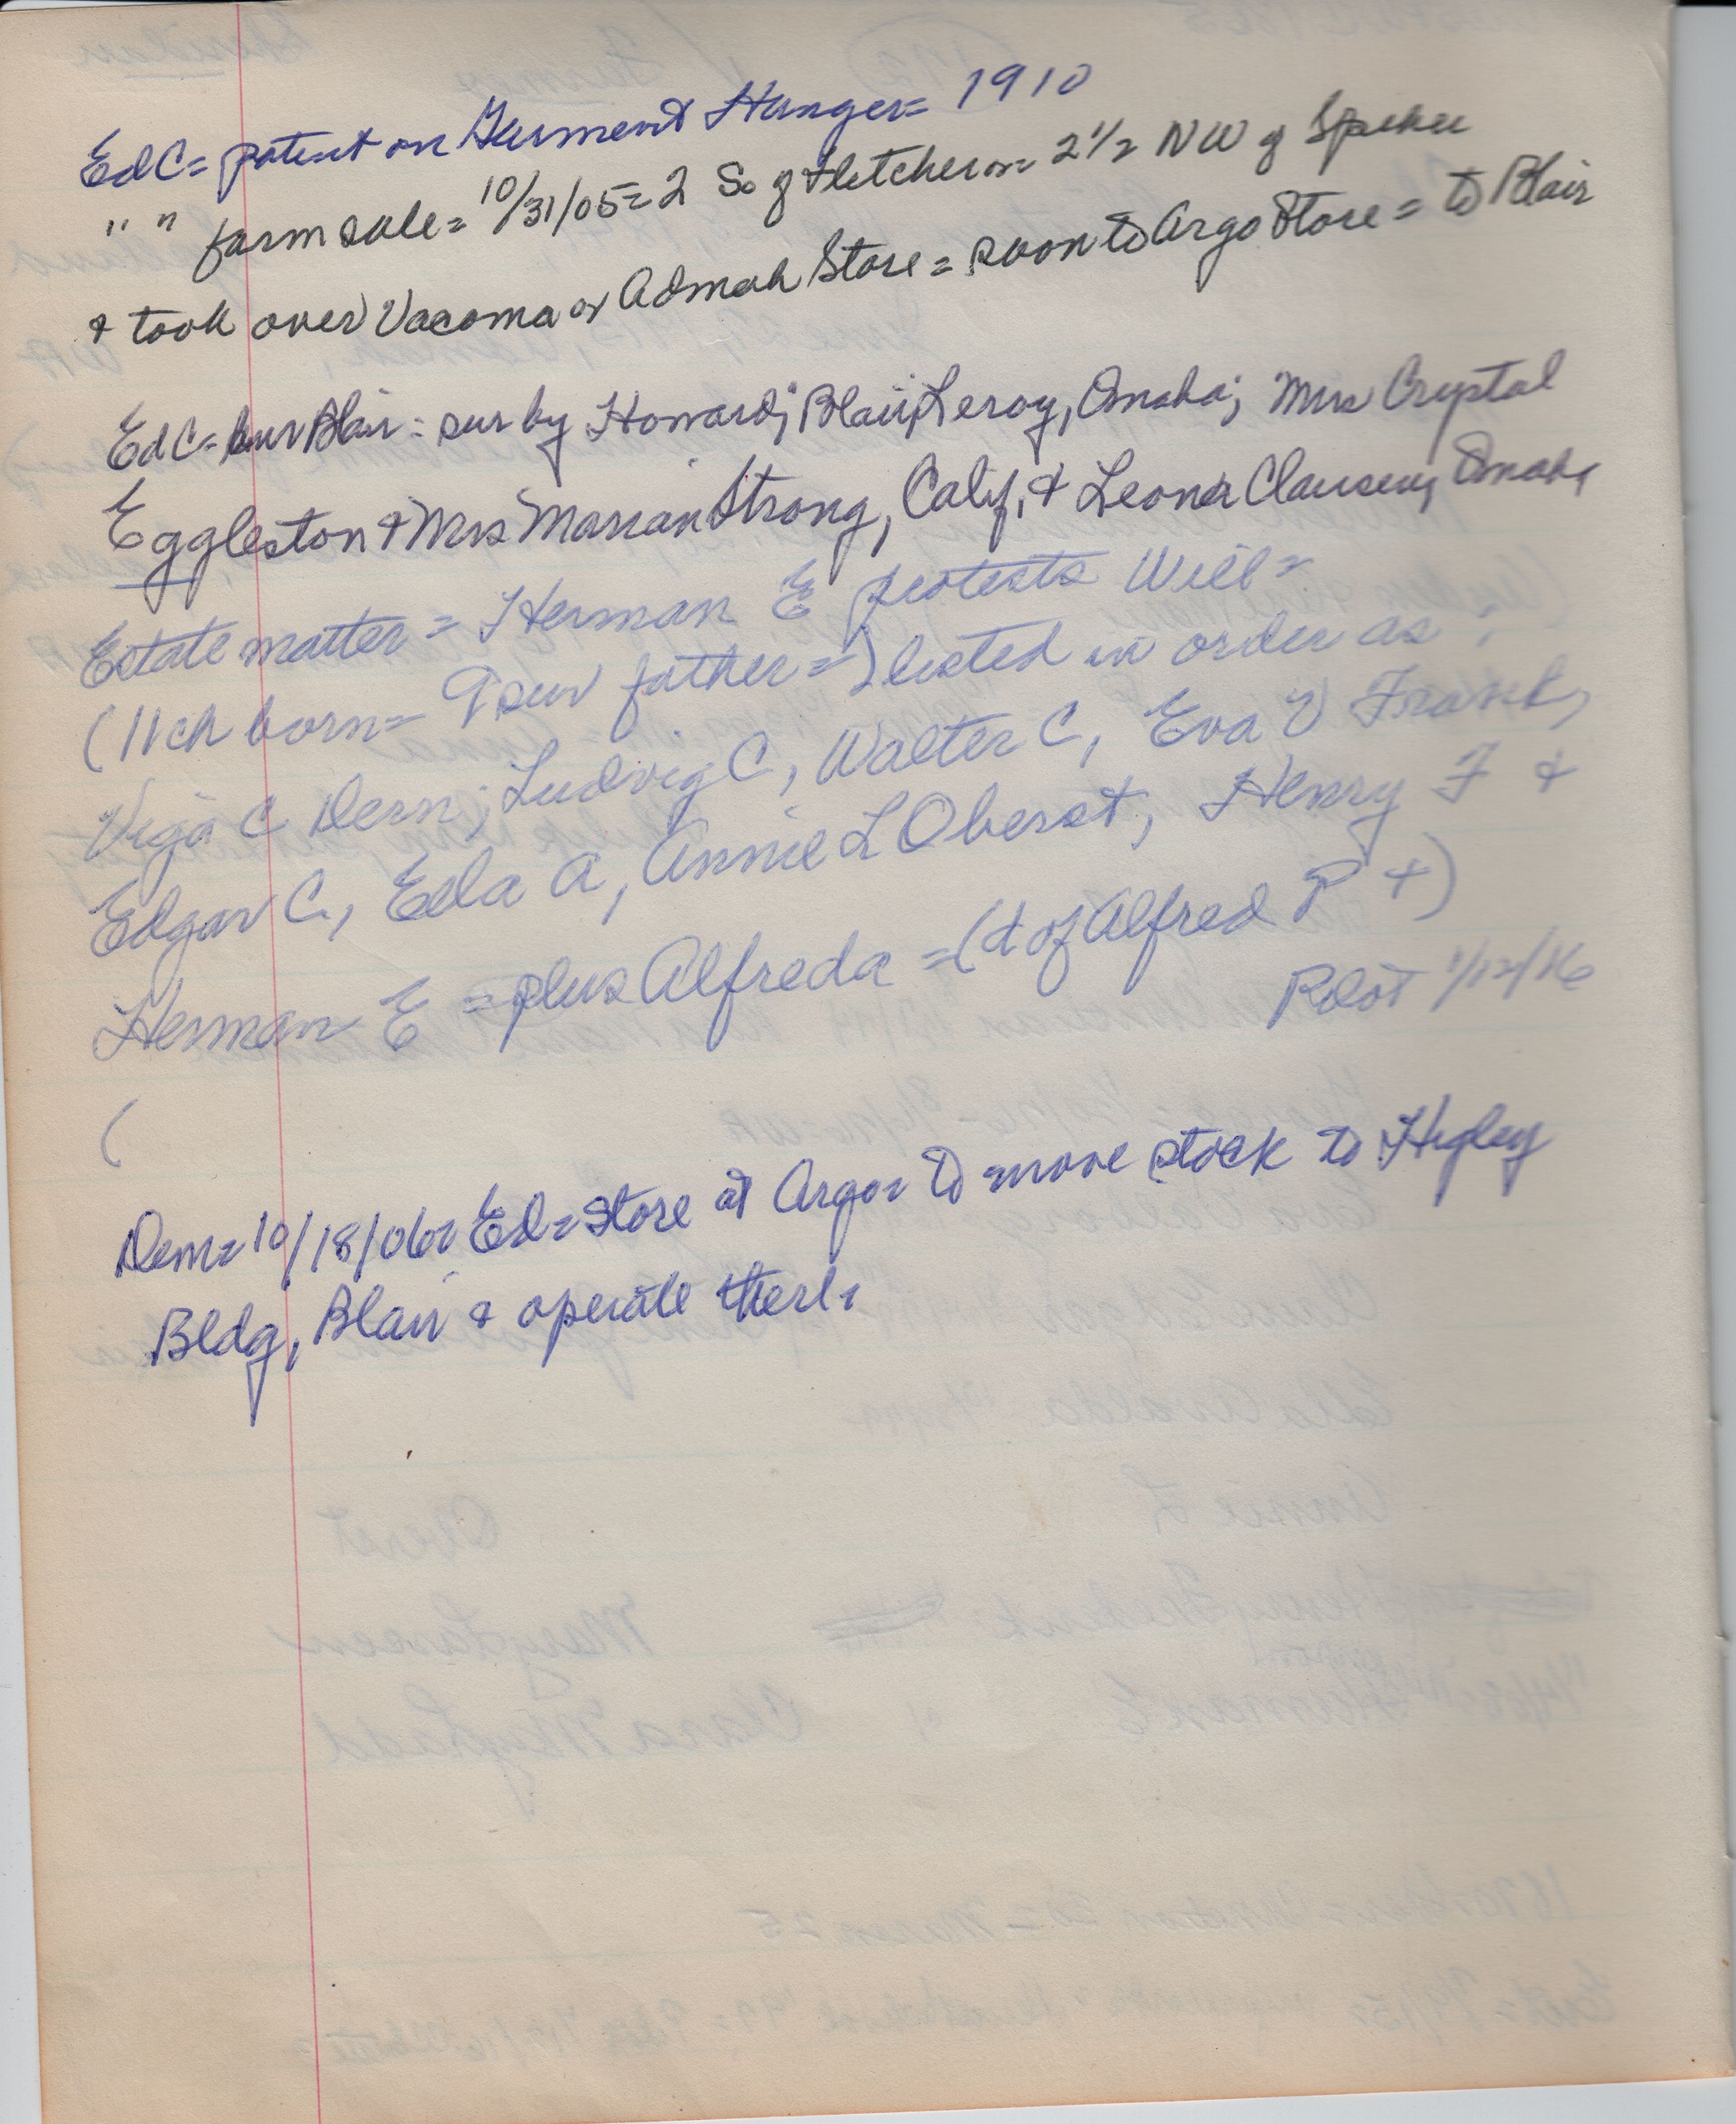 Ed C = patent on Garment Hanger = 1910
" " farm sale = 10/31/05 = 2 So of Fletcher on = 2 1/2 NW of Spiker
& took over Vacoma or Admah Store = soon to Argo Store = to Blair
Ed C = bur Blair : sur by Howard; Blair, Leroy, Omaha; Mrs Crystal
Eggleston & Mrs Marian Strong, Calif, & Leona Clausen, Omaha
Estate matter = Herman E protests Will =
(11 ch born = 9 sur father =) listed in order as :
Viga C Dern; Ludvig C, Walter C, Eva V Frank,
Edgar C., Edla A, Annie L Oberst, Henry F &
Herman E = plus Alfreda = (d of Alfred P +)
Pilot 1/12/16
(
Dem = 10/18/06 = Ed = Store at Argo = to move stock to Higley
Bldg, Blair & operate there.